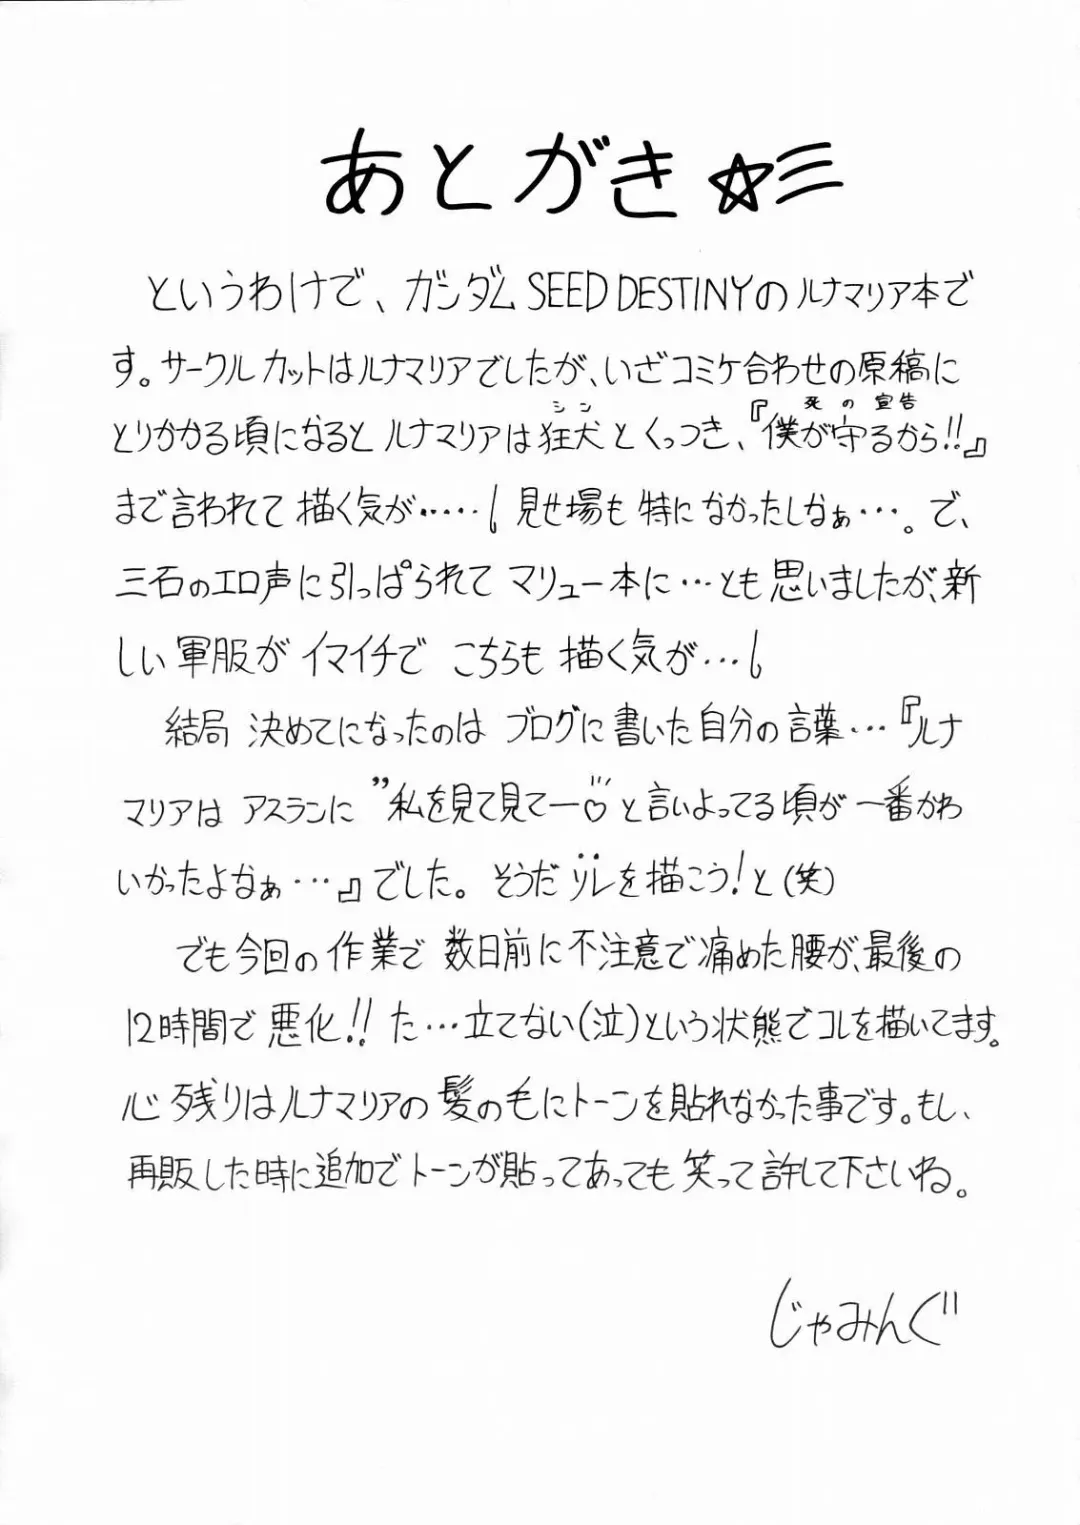 あとがき☆彡
というわけで、ガンダムSEED DESTINYのルナマリア本で
す。サークルカットはルナマリアでしたが、いざコミケ合わせの原稿に
シン 死の宣告
とりかかる頃になるとルナマリアは狂犬とくっつき、『僕が守るから!!』
まで言われて描く気が……。見せ場も特になかったしなぁ…。で、
三石のエロ声に引っぱられてマリュー本に…とも思いましたが、新
しい軍服がイマイチでこちらも描く気が…。
結局決めてになったのはブログに書いた自分の言葉…『ルナ
マリアはアスランに”私を見て見てー♡と言いよってる頃が一番かわ
いかったよなぁ…』でした。そうだソレを描こう!と(笑)
でも今回の作業で数日前に不注意で痛めた腰が、最後の
12時間で悪化!!た…立てない(泣)という状態でコレを描いてます。
心残りはルナマリアの髪の毛にトーンを貼れなかった事です。もし、
再販した時に追加でトーンが貼ってあっても笑って許して下さいね。
じゃみんぐ